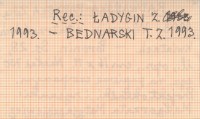 Rec.: ŁADYGIN Z.
1993. – BEDNARSKI T. Z. 1993.